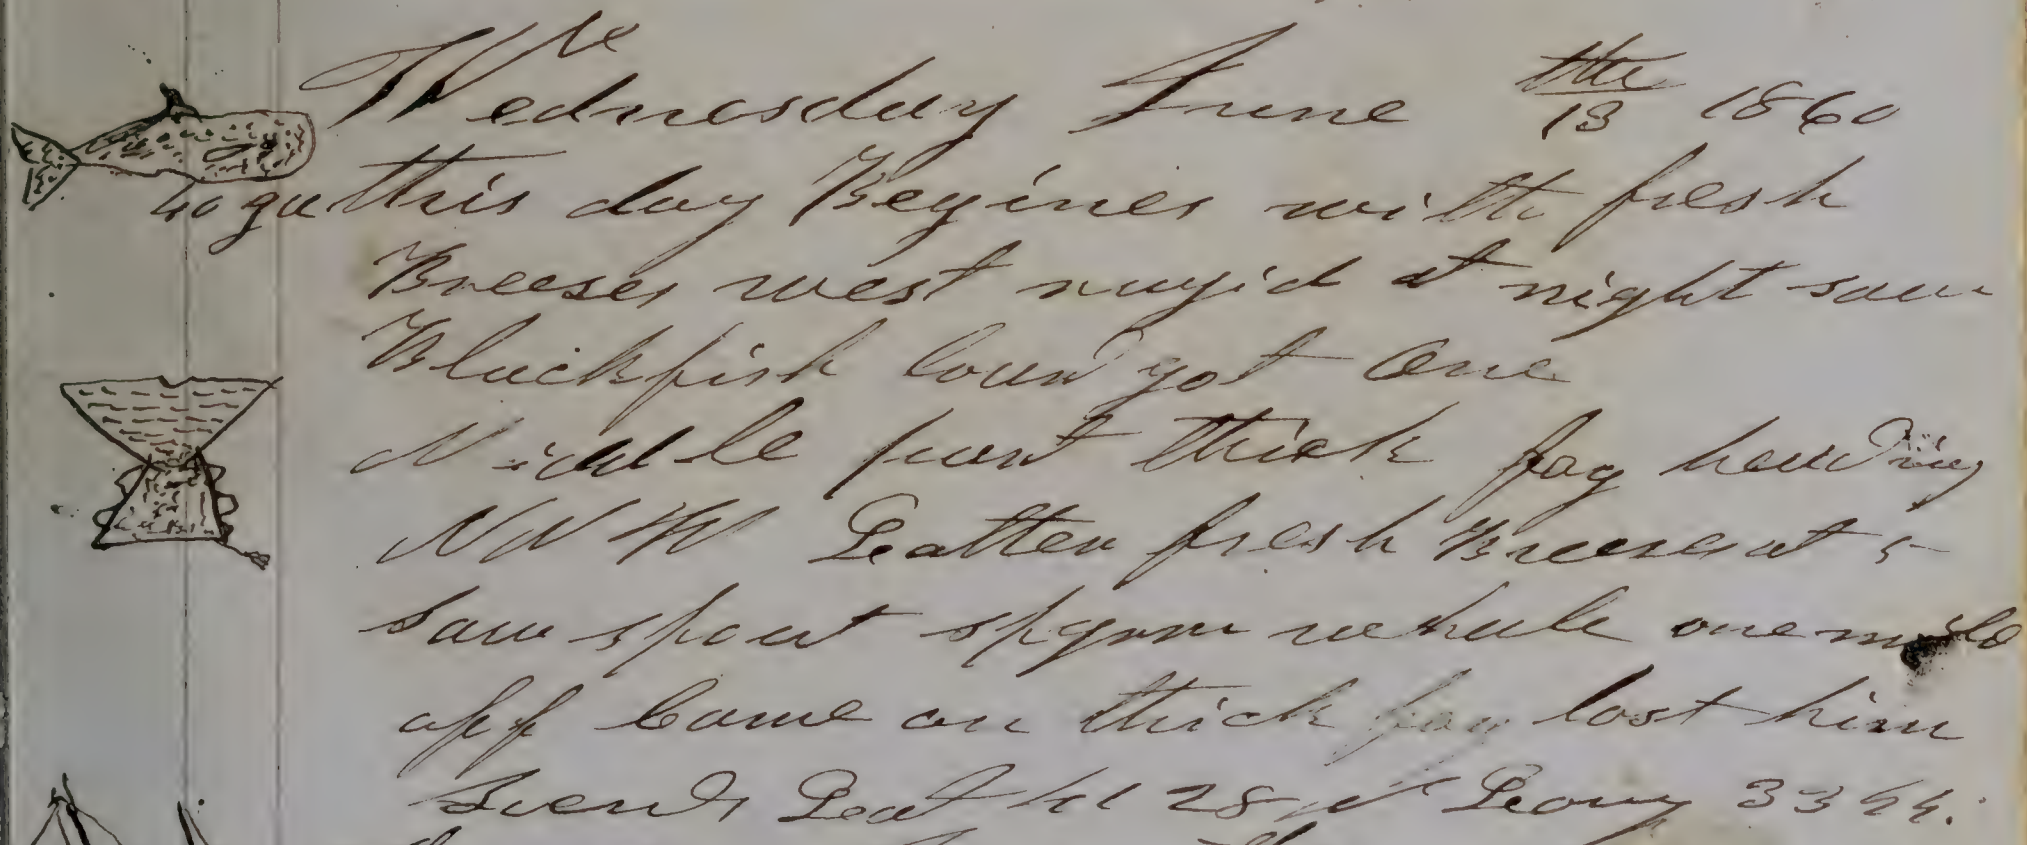 We
Wednesday June 13 the 1860
40 ga this day Begines with fresh
Breeses west at night saw
Blackfish got One
Middle part thick fog heading
NNW Latter fresh Breeses at 5
Saw spout spqrm whale one mile
off Came on thick fog lost him
Lat 28 N Long 33